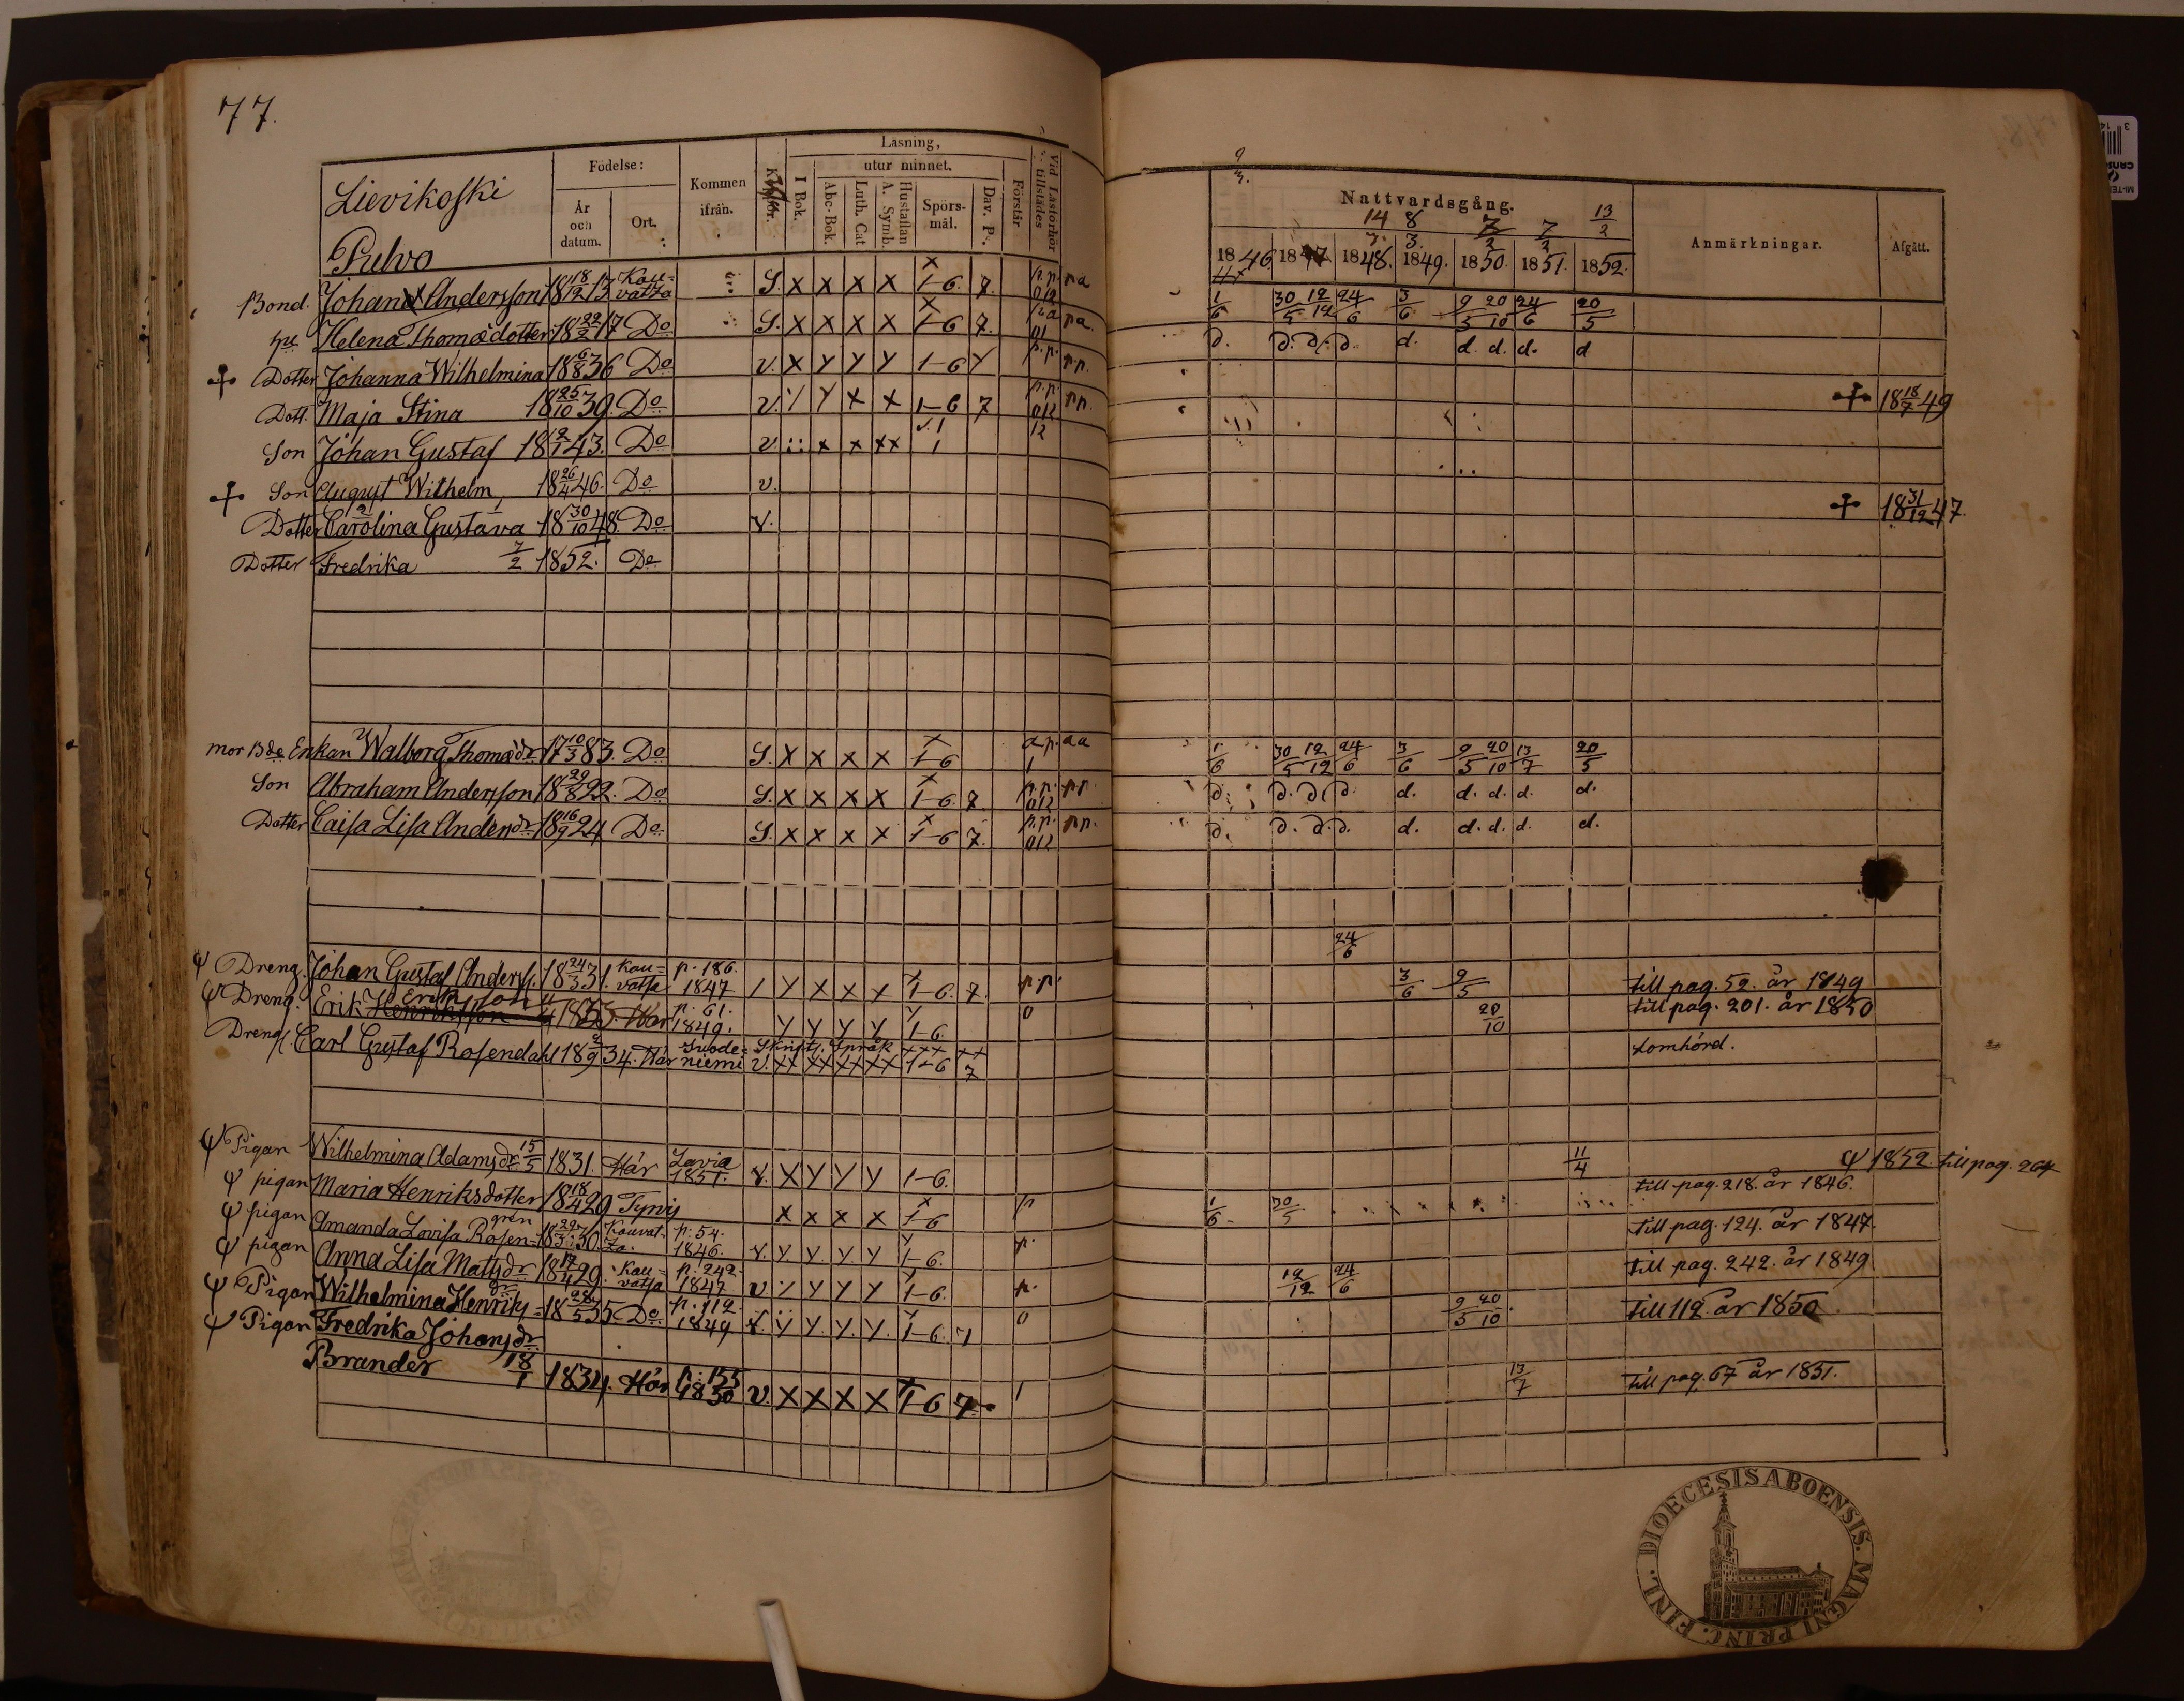 77.
Lievikoski
Pulvo
Födelse:
År och datum.
Ort.
Kommen ifrån.
Läsning,
I Bok.
utur minnet.
Abc-Bok.
Luth. Cat
A. Symb.
Hustaflan
Spörs-mål.
Dav. Ps.
Förstår
Vid Läsförhör tillstädes
Nattvardsgång.
14/7. 8/3. 7/2 7/2 13/2
1846. 1847 1848. 1849. 1850. 1851. 1852.
Anmärkningar.
Afgått.
Bond. Johan Andersson 18 18/12 13 Kau-vatsa S. X X X X 1-6. 7. p.p. pa 1/6 30/5 12/12 24/6 3/6 9/5 20/10 24/6 20/5
hu Helena Thomædotter 18 22/2 17 Do S. X X X X 1-6 7. pa pa. d. d. d. d. d. d. d. d. d
+ Dotter Johanna Wilhelmina 18 6/8 36 Do v. X Y Y Y 1-6 Y p.p. p.p. + 18 18/7 49
Dott. Maja Stina 18 25/10 39. Do v. Y X X 1-6 7 p.p. pp.
Son Johan Gustaf 18 2/1 43. Do v. x x xx 1 12
+ Son August Wilhelm 18 26/4 46. Do v. + 18 31/12 47.
Dotter Carolina Gustava 18 30/10 48. Do v.
Dotter Fredrika 7/2 1852. Do
mor Bde Enkan Walborg Thomædr 17 10/3 83. Do S. X X X X 1-6 a.p. aa 1/6 30/5 12/12 24/6 3/6 9/5 20/10 13/7 20/5
Son Abraham Andersson 18 29/8 22. Do S. X X X X 1-6. 7. p.p. p.p. d. d. d. d. d. d. d. d. d.
Dotter Caisa Lisa Andersdr 18 16/9 24 Do S. X X X X 1-6 7. p.p. pp. d. d. d. d. d. d. d. d. d.
24/6
Dreng. Johan Gustaf Anderss. 18 24/3 31. Kau-vatsa p. 186. 1847 / Y X X X 1-6. 7. p.p. 3/6 9/5 till pag. 52. år 1849
Dreng. Erik Henriksson Eriksson Här p. 61. 1849. Y Y Y Y 1-6. 0 20/10 till pag. 201. år 1850
Dreng. Carl Gustaf Rosendahl 18 2/9 34. Här Suode-niemi Skrift. Språk v. XX XX XX XX 1-6 7 Lomhörd.
Pigan Wilhelmina Adamsdr 15/5 1831. Här Lavia 1851. v. X Y Y Y 1-6. 11/4 1852. till pag. 264
pigan Maria Henriksdotter 18 18/4 29 Tyrvis X X X X 1-6 p 1/6 30/5 till pag. 218. år 1846.
pigan Amanda Lovisa Rosen-gren 18 22/3 30. Kauvat-za. p. 54. 1846. v. Y. Y. Y. Y 1-6. p. till pag. 124. år 1847.
pigan Anna Lisa Mattsdr 18 17/4 29. Kau-vatsa p. 242. 1847 v Y Y Y Y 1-6. p. 12/12 24/6 till pag. 242. år 1849
Pigan Wilhelmina Henriks-dr 18 28/5 35 Do p. 112. 1849 v. Y Y. Y. Y. 1-6. 7 0 9/5 20/10 till 112. år 1850
Pigan Fredrika Johansdr.
Brander 18/1 1834. Här p. 155 1850 v. X X X X 1-6 7. 1 13/7 till pag. 67 år 1851.
DIOECESIS ABOENSIS. MAGNI PRINC. FINL.